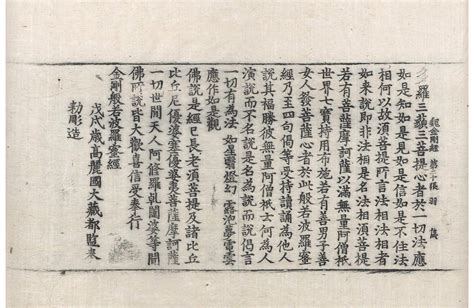 多羅三藐三菩提心者於一切法應
金剛經 第十張 羽
如是知如是見如是信如是不住法
相何以故須菩提所言法相法相者
如來說即非法相是名法相須菩提
若有菩薩摩訶薩以滿無量阿僧祇
世界七寶持用布施若有善男子善
女人發菩薩心者於此般若波羅蜜
經乃至四句偈等受持讀誦為他人
說其福勝彼無量阿僧祇云何為人
演說而不名說是名為說而說偈言
一切有為法 如星翳燈幻 露泡夢電雲
應作如是觀
佛說是經已長老須菩提及諸比丘
比丘尼優婆塞優婆夷菩薩摩訶薩
一切世間天人阿脩羅乾闥婆等聞
佛所說皆大歡喜信受奉行
金剛般若波羅蜜經
戊戌歲高麗國大藏都監奉
勅彫造